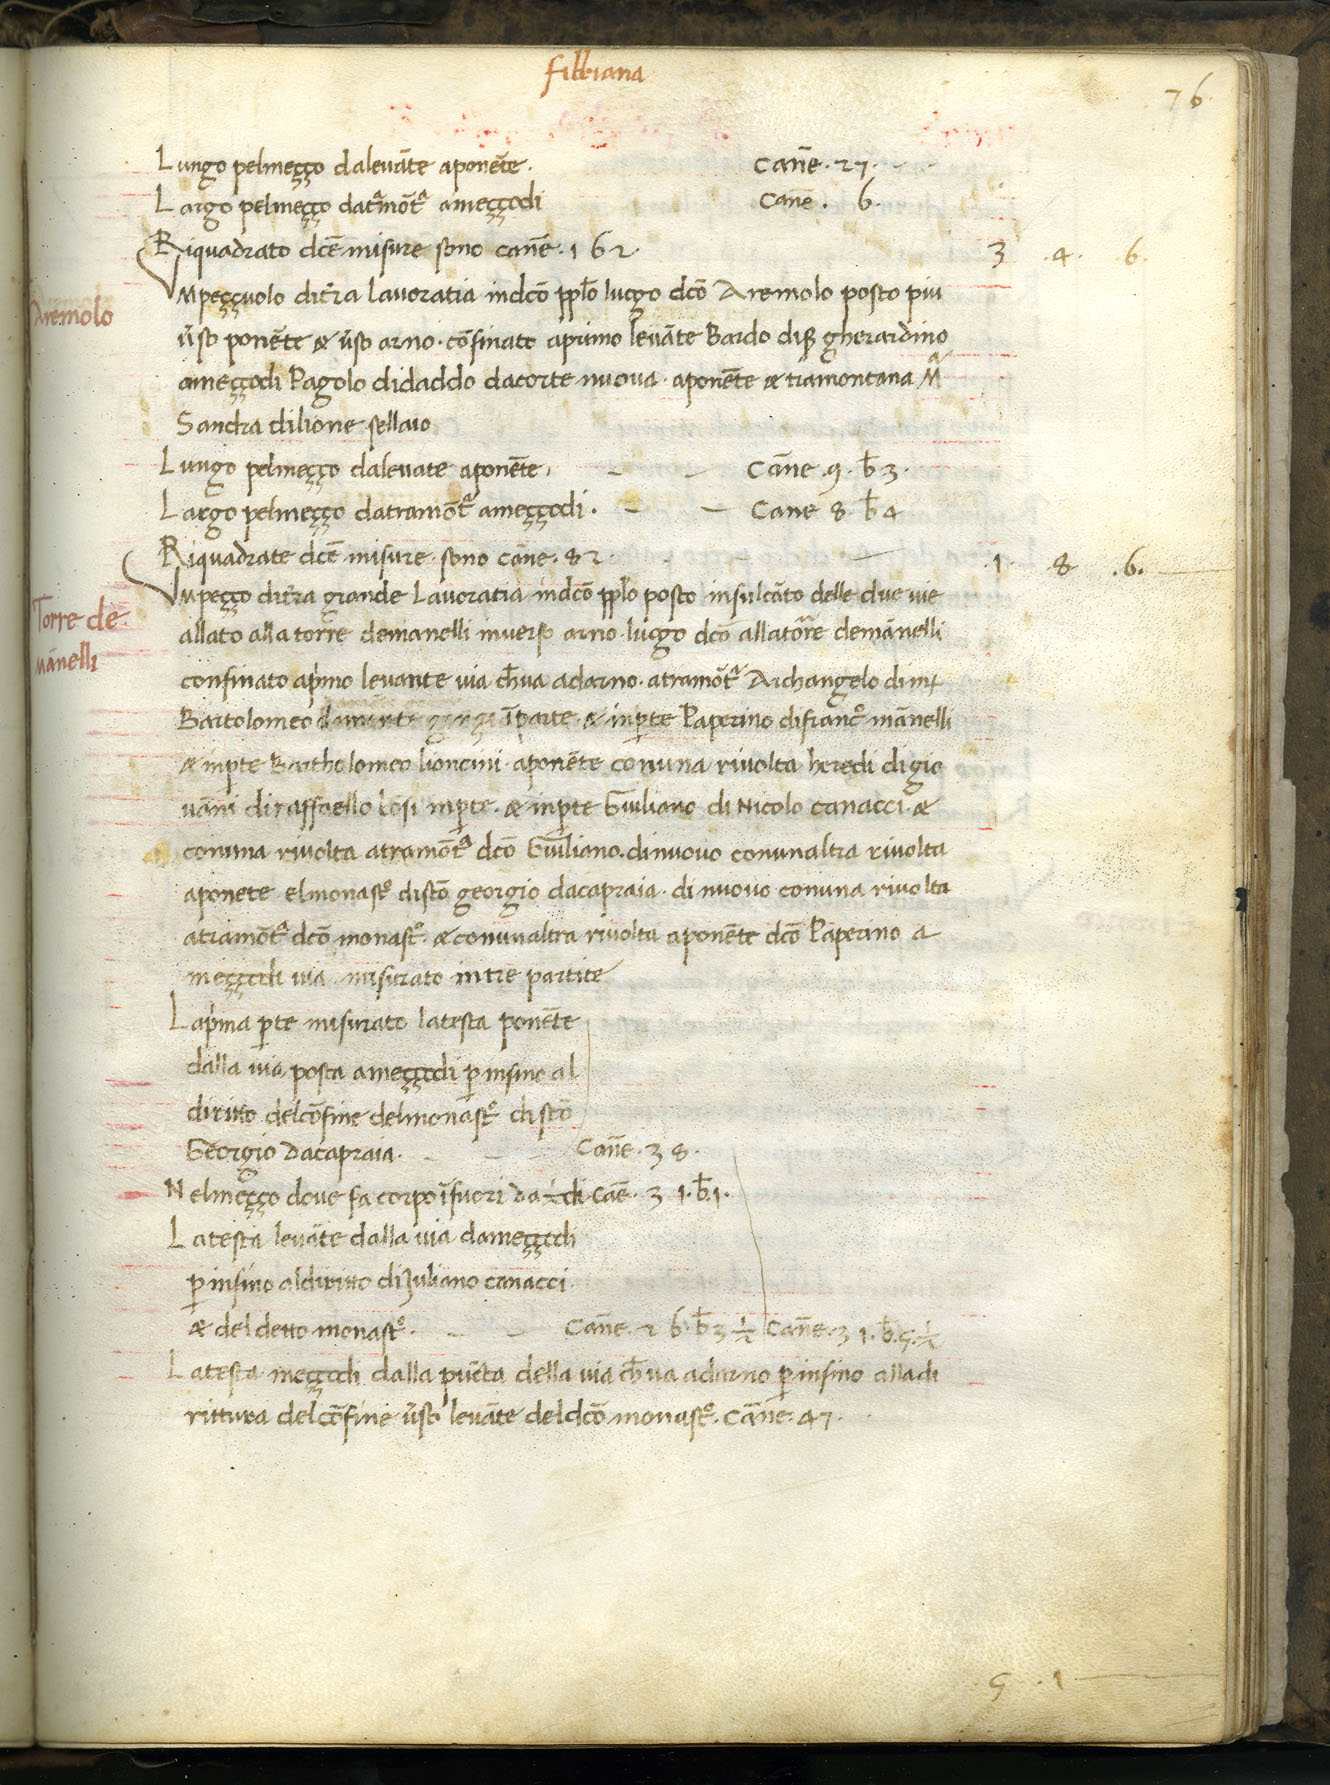 Fibbiana
76
Lungo pelmeçço dalevāte aponēte. Canē. 27.
Largo pelmeçço datrāmōtͣ ameççodi Cane. 6.
Riquadrato dc̄e misure sono canē. 162. 3 .4. 6.
Aremolo
Vmpeççuolo dit̄ra lavoratia indc̄o ppl̄o luogo dc̄o Aremolo posto piu
ūso ponēte & ūso arno. cōfinato aprimo levāte Bardo gherardino
ameççodi Pagolo didaddo dacorte nuova. aponēte & tramontana Mͣ
Sandra dilione sellaio
Lungo pelmeçço dalevate aponēte. – – Cāne .9. b̄ 3.
Largo pelmeçço datramōtͣ ameççodi. – – Cane 8. b̄ 4
Riquadrate dc̄e misure. sono cāne. 82. .1. 8 .6.
Torre de
Mānelli
Vmpeçço dit̄ra grande lavoratia indc̄o ppl̄o posto insulcāto delle due vie
allato alla torre demanelli inverso arno. luogo dc̄o allatōre demānelli
confinato apīmo levante via ch̄va adarno. atramōtͣ Archangelo di
Bartolomeo īparte. & inp̄te Paperino difrancͦ mānelli
& inpte Bartholomeo lioncini. aponēte conuna rivolta heredi digio
vāni diraffaello losi inp̄te. & inp̄te Giuliano di Nicolo canacci. &
conuna rivolta atramōtͣ dc̄o Giuliano. dinuovo conunaltra rivolta
aponete elmonastͦ discō georgio dacapraia. di nuovo conuna rivolta
atramōtͣ dc̄o monastͦ. & conunaltra rivolta aponēte dc̄o Paperino a
meççodi via. misurato intre partite
Lap̄ma p̄te misurato latesta ponēte
dalla via posta ameççodi p̄insino al
diritto delcōfine delmonastͦ di scō
Georgio dacapraia. – – – Canē. 38.
Nelmeçço dove fa corpo īfuori da Cāe. 31. b̄ 1.
Latesta levāte dalla via dameççodi
p̄insino aldiritto di Zuliano canacci
& del detto monastͦ. – – Canē. 26. b̄ 3 ½ Canē. 31. b̄. 5. ½
Latesta meççodi dalla pūta della via ch̄va adarno p̄insino alladi
rittura delcōfine ūso levāte deldc̄o monastͦ. Cānē. 47.
5 .1